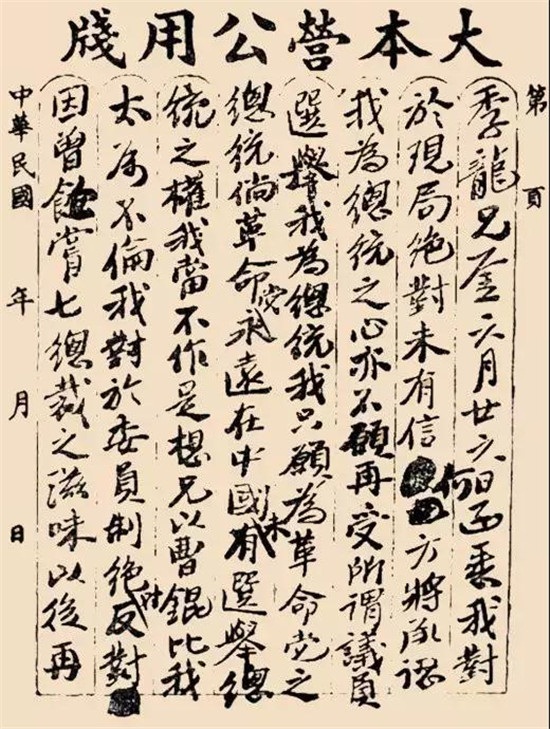 大本營公用牋
第 頁
季龍兄鑒六月廿六日函悉我對
於現局絕對未有信何方將承認
我為總統之心亦不願再受所謂議員
選舉我為總統我只願為革命党之
總統倘革命党永遠在中國未有選舉總
統之權我當不作是想兄以曹錕比我
太為不倫我對於委員制絕對反對
因曾飽嘗七總裁之滋味以後再
中華民國 年 月 日